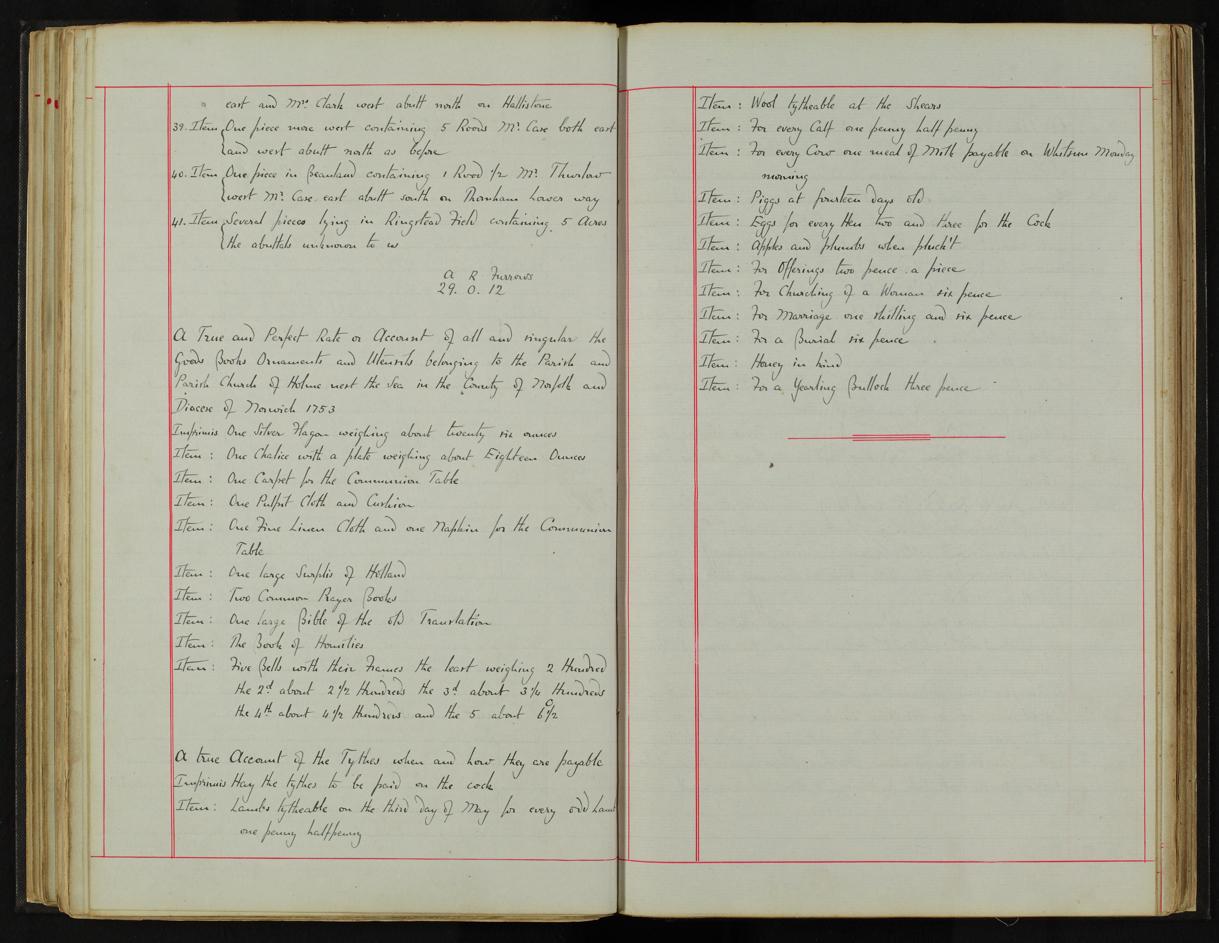 east and Mr. Clark west abutt north on Hallistone
39. Item One piece more west containing 5 Roods Mr. Case both east
and west abutt north as before
40. Item One piece in Beanland containing 1 Rood 1/2 Mr. Thurlow
west Mr. Case east abutt south on Thornham Lower way
41. Item Several pieces lying in Ringstead Field containing 5 Acres
the abuttals unknown to us
A R Furrows
29. 0. 12
A True and Perfect Rate or Account of all and singular the
Goods Books Ornaments and Utensils belonging to the Parish and
Parish Church of Holme next the Sea in the County of Norfolk and
Diocese of Norwich 1753
Imprimis One Silver Flagon weighing about twenty six ounces
Item : One Chalice with a plate weighing about Eighteen Ounces
Item : One Carpet for the Communion Table
Item : One Pulpit Cloth and Cushion
Item : One Fine Linen Cloth and one Napkin for the Communion
Table
Item : One large Surplis of Holland
Item : Two Common Prayer Books
Item : One large Bible of the old Translation
Item : The Book of Homilies
Item : Five Bells with their Frames the least weighing 2 Hundred
the 2d about 2 1/2 Hundreds the 3d about 3 1/4 Hundreds
the 4th about 4 1/2 Hundreds and the 5 about 6c 1/2
A true Account of the Tythes when and how they are payable
Imprimis Hay the tythes to be paid on the cock
Item : Lambs tytheable on the third day of May for every odd Lamb
one penny halfpenny
Item : Wool tytheable at the Shears
Item : For every Calf one penny half penny
Item : For every Cow one meal of Milk payable on Whitsun Monday
morning
Item : Piggs at fourteen days old
Item : Eggs for every Hen two and three for the Cock
Item : Apples and plumbs when pluck't
Item : For Offerings two pence a piece
Item : For Churching of a Woman six pence
Item : For Marriage one shilling and six pence
Item : For a Burial six pence
Item : Honey in kind
Item : For a Yearling Bullock three pence